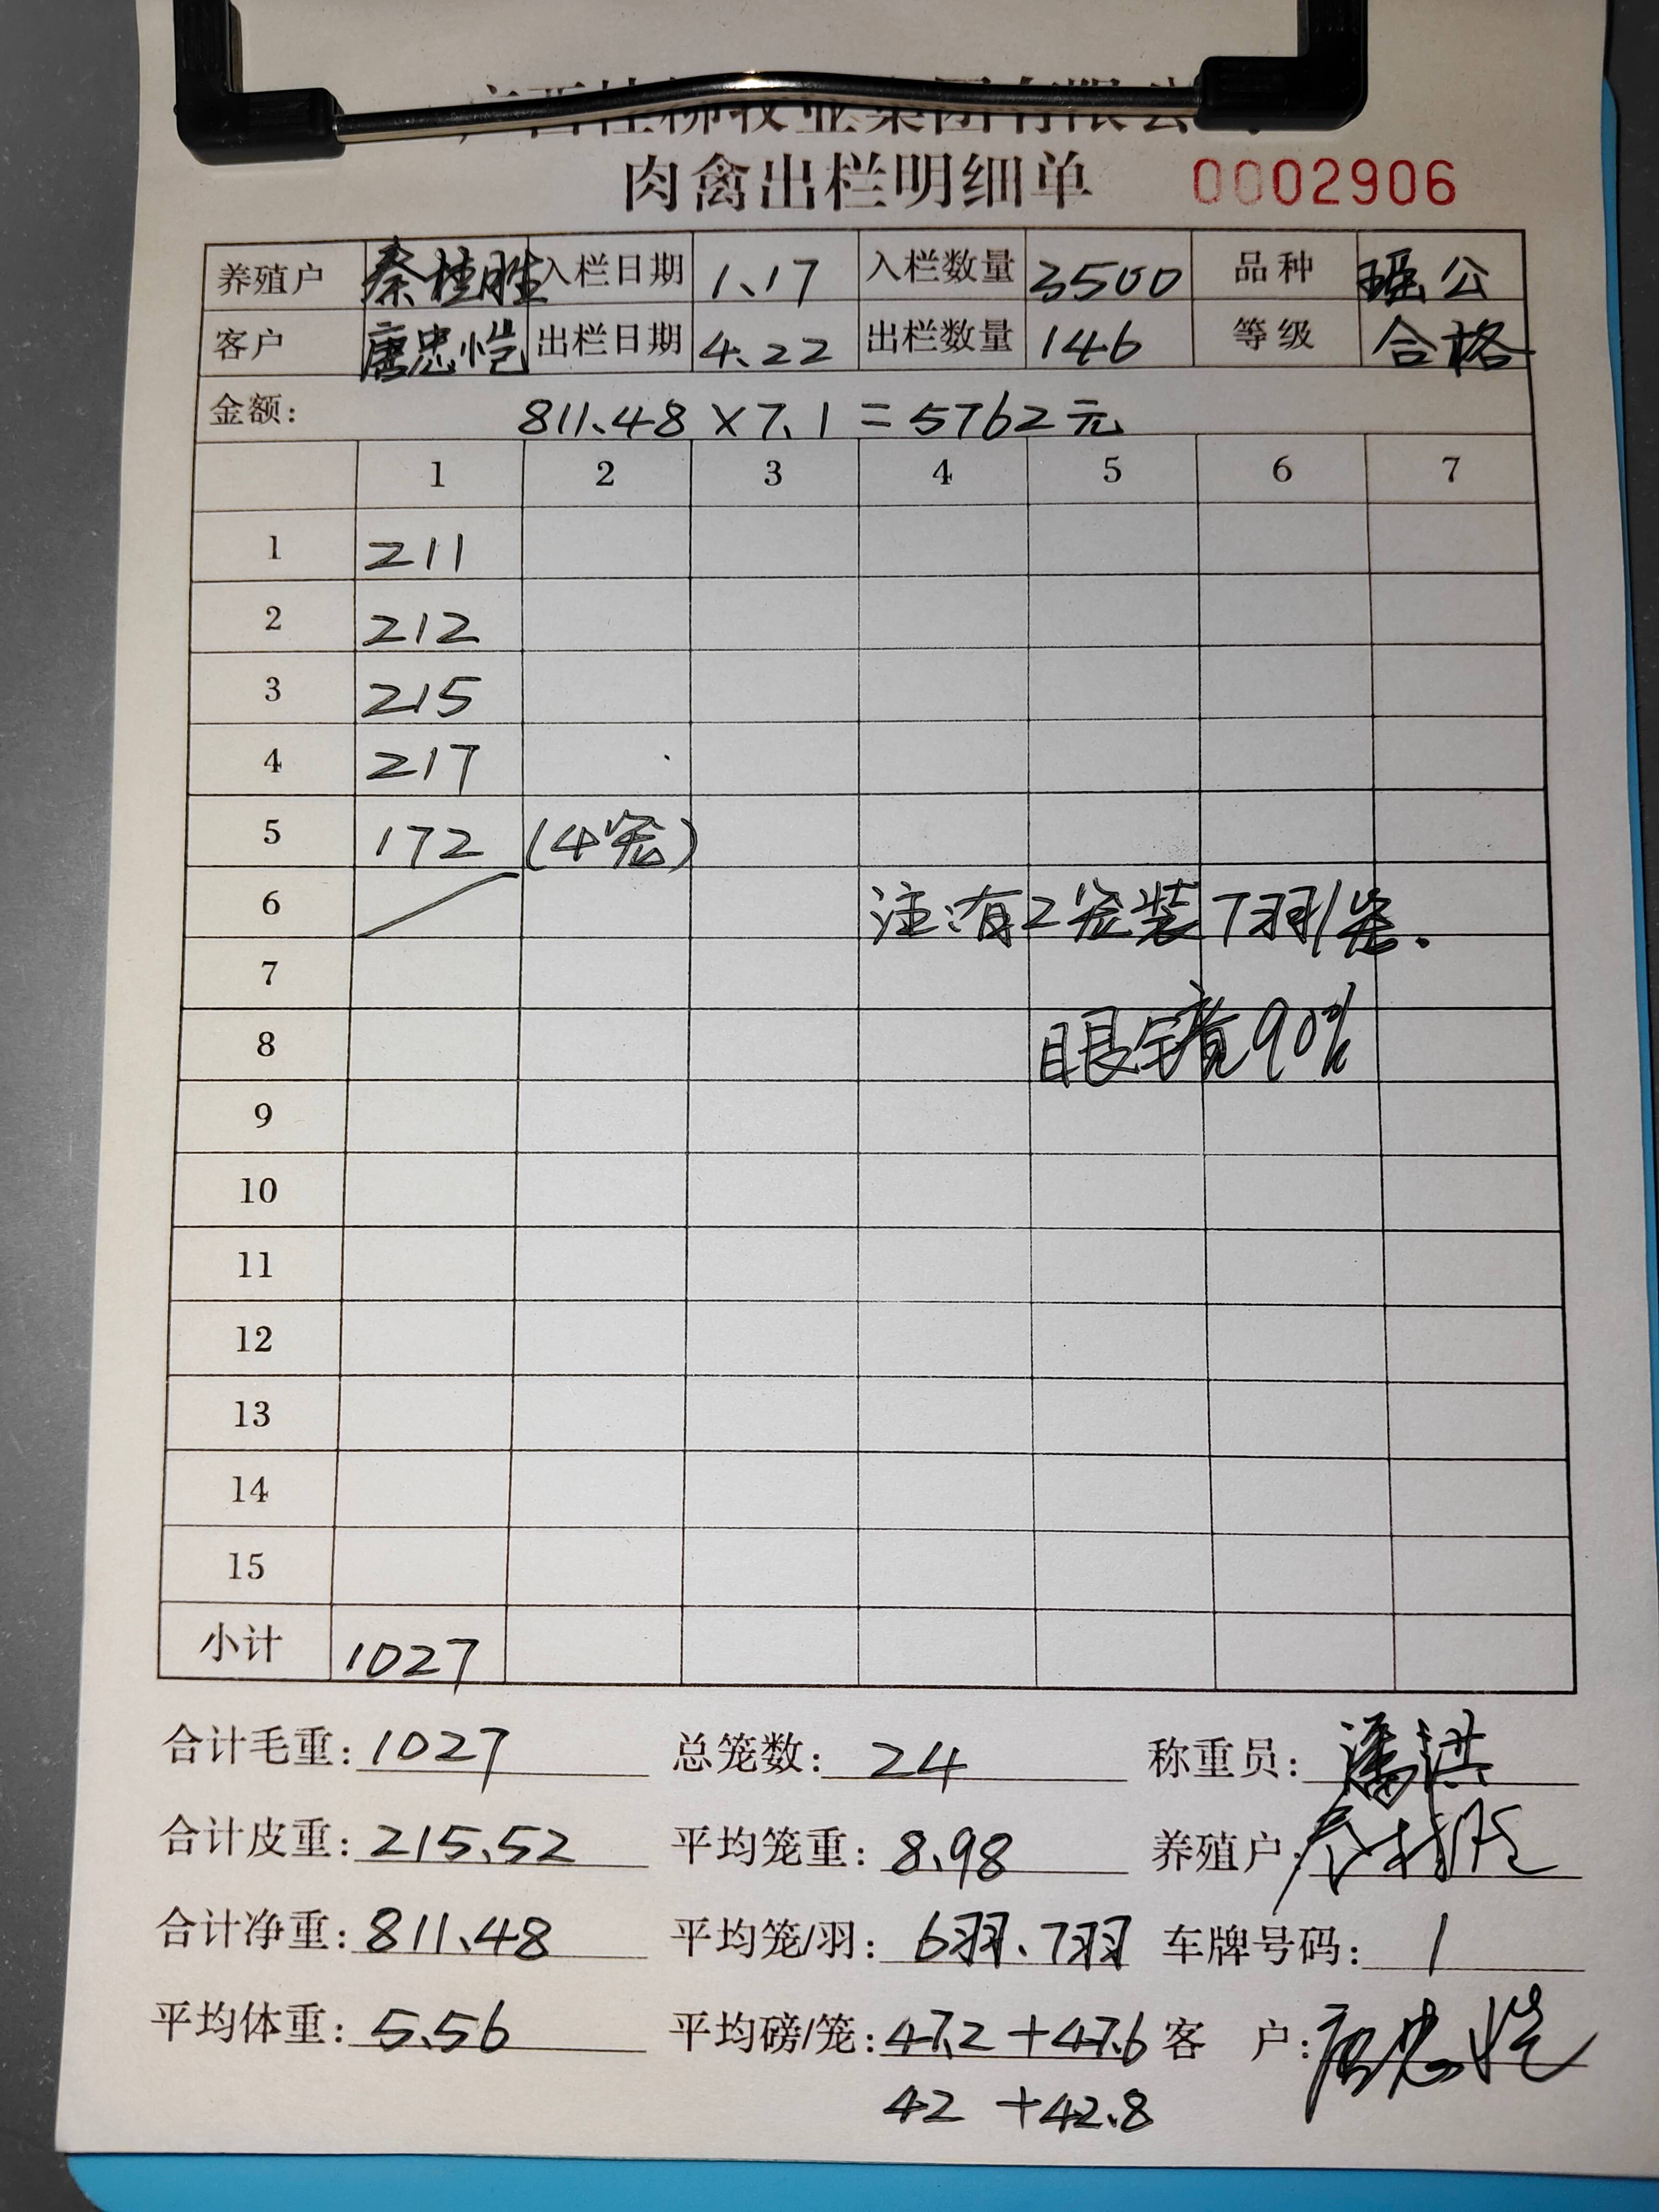 广西桂柳牧业集团有限公司
肉禽出栏明细单 0002906
养殖户 秦桂胜 入栏日期 1.17 入栏数量 3500 品种 瑶公
客户 唐忠恺 出栏日期 4.22 出栏数量 146 等级 合格
金额: 811.48×7.1=5762元
1 2 3 4 5 6 7
1 211
2 212
3 215
4 217
5 172 (4笼)
6 注:有2笼装7羽/笼.
7
8 眼镜90%
9
10
11
12
13
14
15
小计 1027
合计毛重: 1027 总笼数: 24 称重员: 潘洪
合计皮重: 215.52 平均笼重: 8.98 养殖户: 秦桂胜
合计净重: 811.48 平均笼/羽: 6羽.7羽 车牌号码: 1
平均体重: 5.56 平均磅/笼: 47.2+47.6 客 户: 唐忠恺
42+42.8